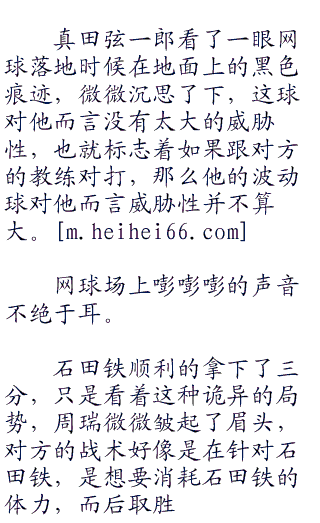 真田弦一郎看了一眼网
球落地时候在地面上的黑色
痕迹，微微沉思了下，这球
对他而言没有太大的威胁
性，也就标志着如果跟对方
的教练对打，那么他的波动
球对他而言威胁性并不算
大。[m.heihei66.com]
网球场上嘭嘭嘭的声音
不绝于耳。
石田铁顺利的拿下了三
分，只是看着这种诡异的局
势，周瑞微微皱起了眉头，
对方的战术好像是在针对石
田铁，是想要消耗石田铁的
体力，而后取胜